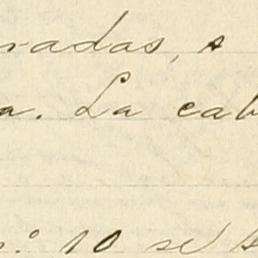 radas, s
a. La cab
n.º 10 se